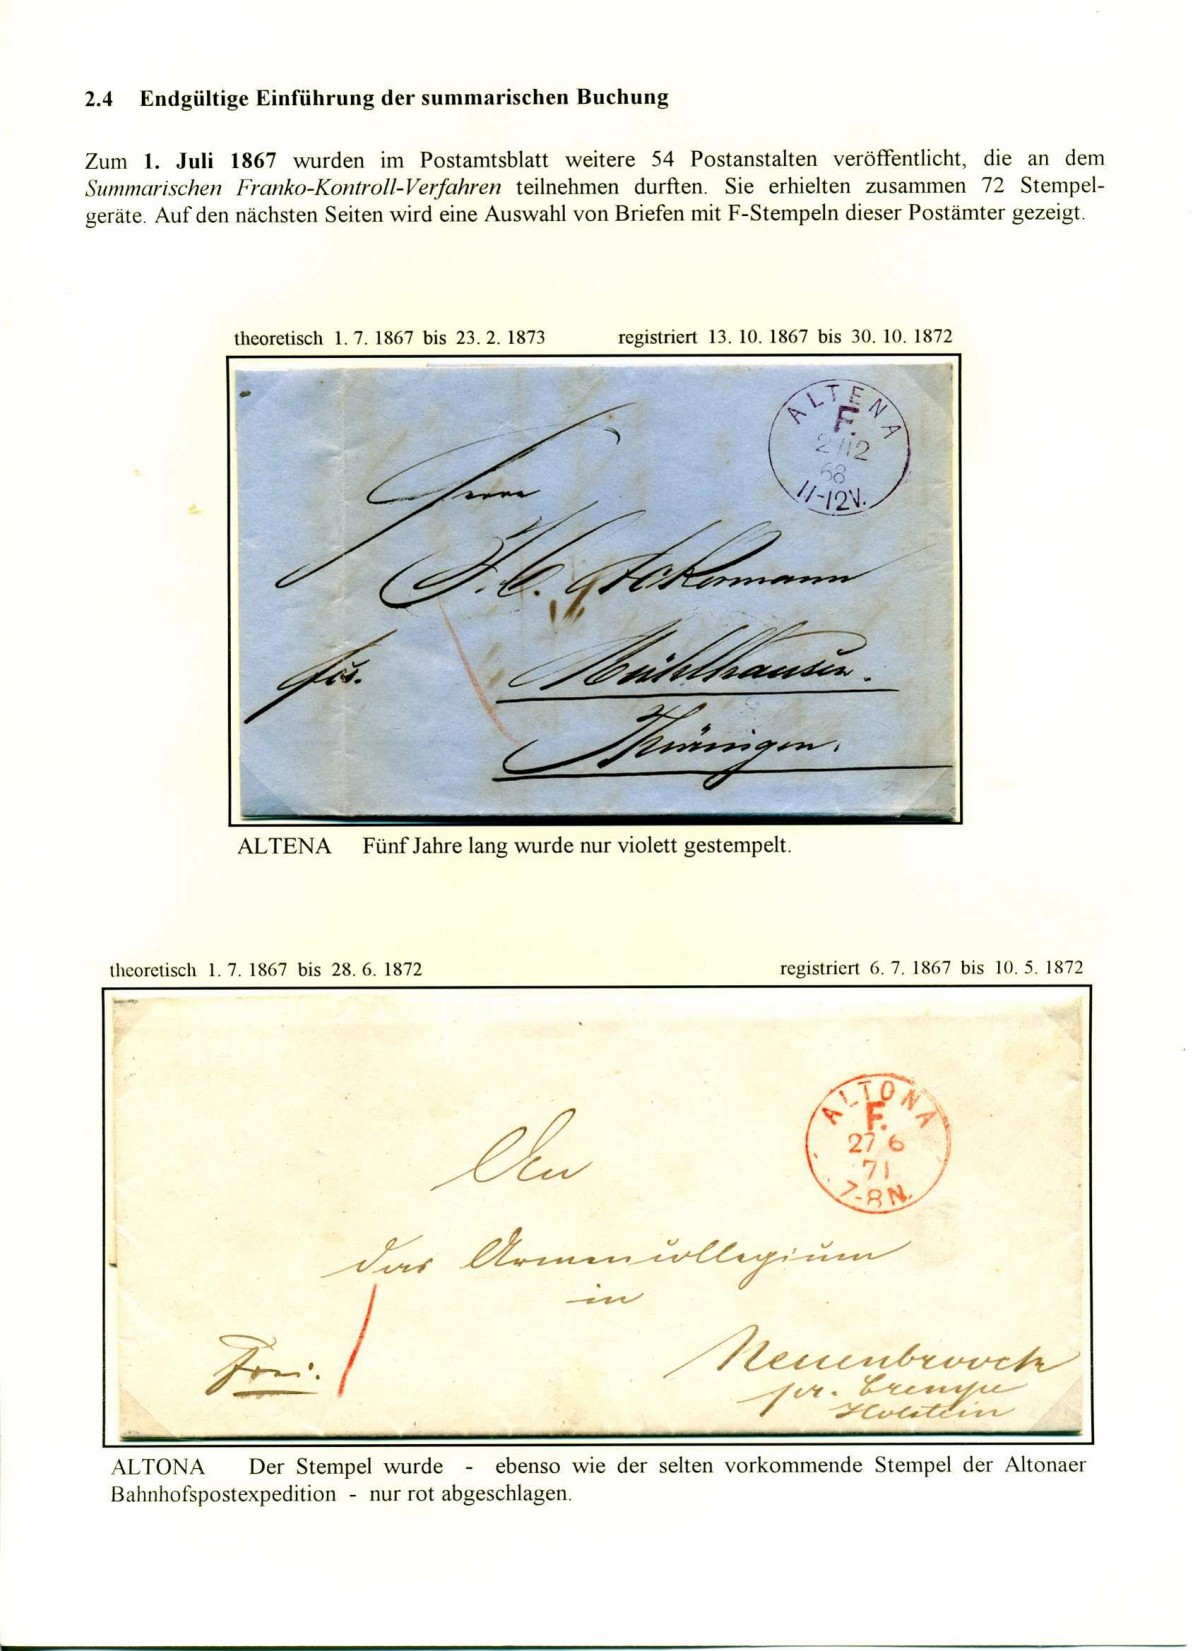 2.4 Endgültige Einführung der summarischen Buchung
Zum 1. Juli 1867 wurden im Postamtsblatt weitere 54 Postanstalten veröffentlicht, die an dem
Summarischen Franko-Kontroll-Verfahren teilnehmen durften. Sie erhielten zusammen 72 Stempel-
geräte. Auf den nächsten Seiten wird eine Auswahl von Briefen mit F-Stempeln dieser Postämter gezeigt.
theoretisch 1. 7. 1867 bis 23. 2. 1873 registriert 13. 10. 1867 bis 30. 10. 1872
ALTENA
F.
2/12
68
11-12V.
Herrn
Ackermann
Mühlhausen.
Thüringen.
ALTENA Fünf Jahre lang wurde nur violett gestempelt.
theoretisch 1. 7. 1867 bis 28. 6. 1872 registriert 6. 7. 1867 bis 10. 5. 1872
ALTONA
F.
27 6
71
7-8N.
An
das Armencollegium
in
Frei.
Neuenbroock
pr. Crempe
Holstein
ALTONA Der Stempel wurde - ebenso wie der selten vorkommende Stempel der Altonaer
Bahnhofspostexpedition - nur rot abgeschlagen.